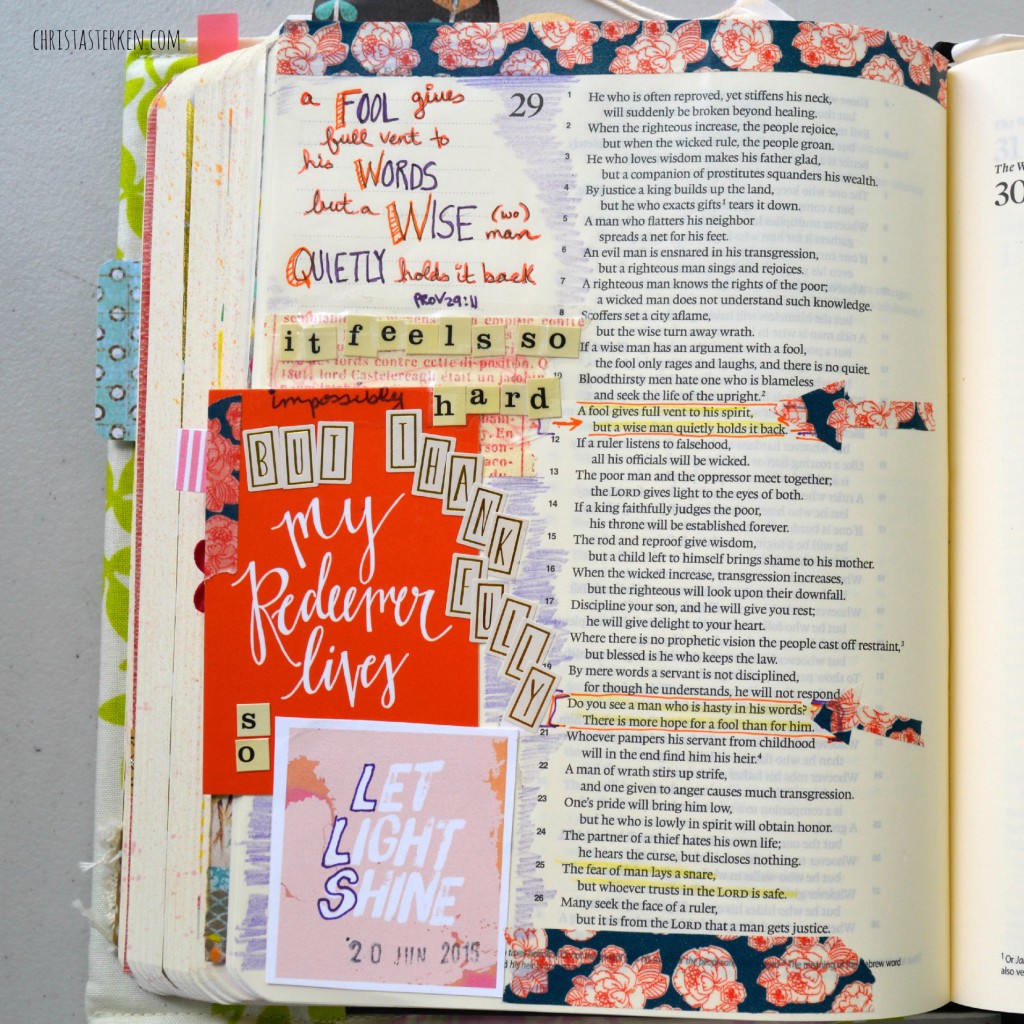 CHRISTASTERKEN.COM
a FOOL gives
full vent to
his WORDS
but a WISE (wo)
man
QUIETLY holds it back
PROV 29:11
it feels so
lords contre cette disposition. Q
1801, lord Castelereagh était un jacobin
impossibly hard
BUT THANK
FULLY
my
Redeemer
lives
so
LET
LIGHT
SHINE
20 JUN 2015
29
1 He who is often reproved, yet stiffens his neck,
will suddenly be broken beyond healing.
2 When the righteous increase, the people rejoice,
but when the wicked rule, the people groan.
3 He who loves wisdom makes his father glad,
but a companion of prostitutes squanders his wealth.
4 By justice a king builds up the land,
but he who exacts gifts¹ tears it down.
5 A man who flatters his neighbor
spreads a net for his feet.
6 An evil man is ensnared in his transgression,
but a righteous man sings and rejoices.
7 A righteous man knows the rights of the poor;
a wicked man does not understand such knowledge.
8 Scoffers set a city aflame,
but the wise turn away wrath.
If a wise man has an argument with a fool,
the fool only rages and laughs, and there is no quiet.
10 Bloodthirsty men hate one who is blameless
and seek the life of the upright.²
A fool gives full vent to his spirit,
but a wise man quietly holds it back.
12 If a ruler listens to falsehood,
all his officials will be wicked.
13 The poor man and the oppressor meet together;
the LORD gives light to the eyes of both.
14 If a king faithfully judges the poor,
his throne will be established forever.
15 The rod and reproof give wisdom,
but a child left to himself brings shame to his mother.
16 When the wicked increase, transgression increases,
but the righteous will look upon their downfall.
17 Discipline your son, and he will give you rest;
he will give delight to your heart.
Where there is no prophetic vision the people cast off restraint,³
but blessed is he who keeps the law.
19 By mere words a servant is not disciplined,
for though he understands, he will not respond.
Do you see a man who is hasty in his words?
There is more hope for a fool than for him.
21 Whoever pampers his servant from childhood
will in the end find him his heir.⁴
22 A man of wrath stirs up strife,
and one given to anger causes much transgression.
23 One's pride will bring him low,
but he who is lowly in spirit will obtain honor.
24 The partner of a thief hates his own life;
he hears the curse, but discloses nothing.
25 The fear of man lays a snare,
but whoever trusts in the LORD is safe.
26 Many seek the face of a ruler,
but it is from the LORD that a man gets justice.
The W
30
¹ Or Ja
also ve